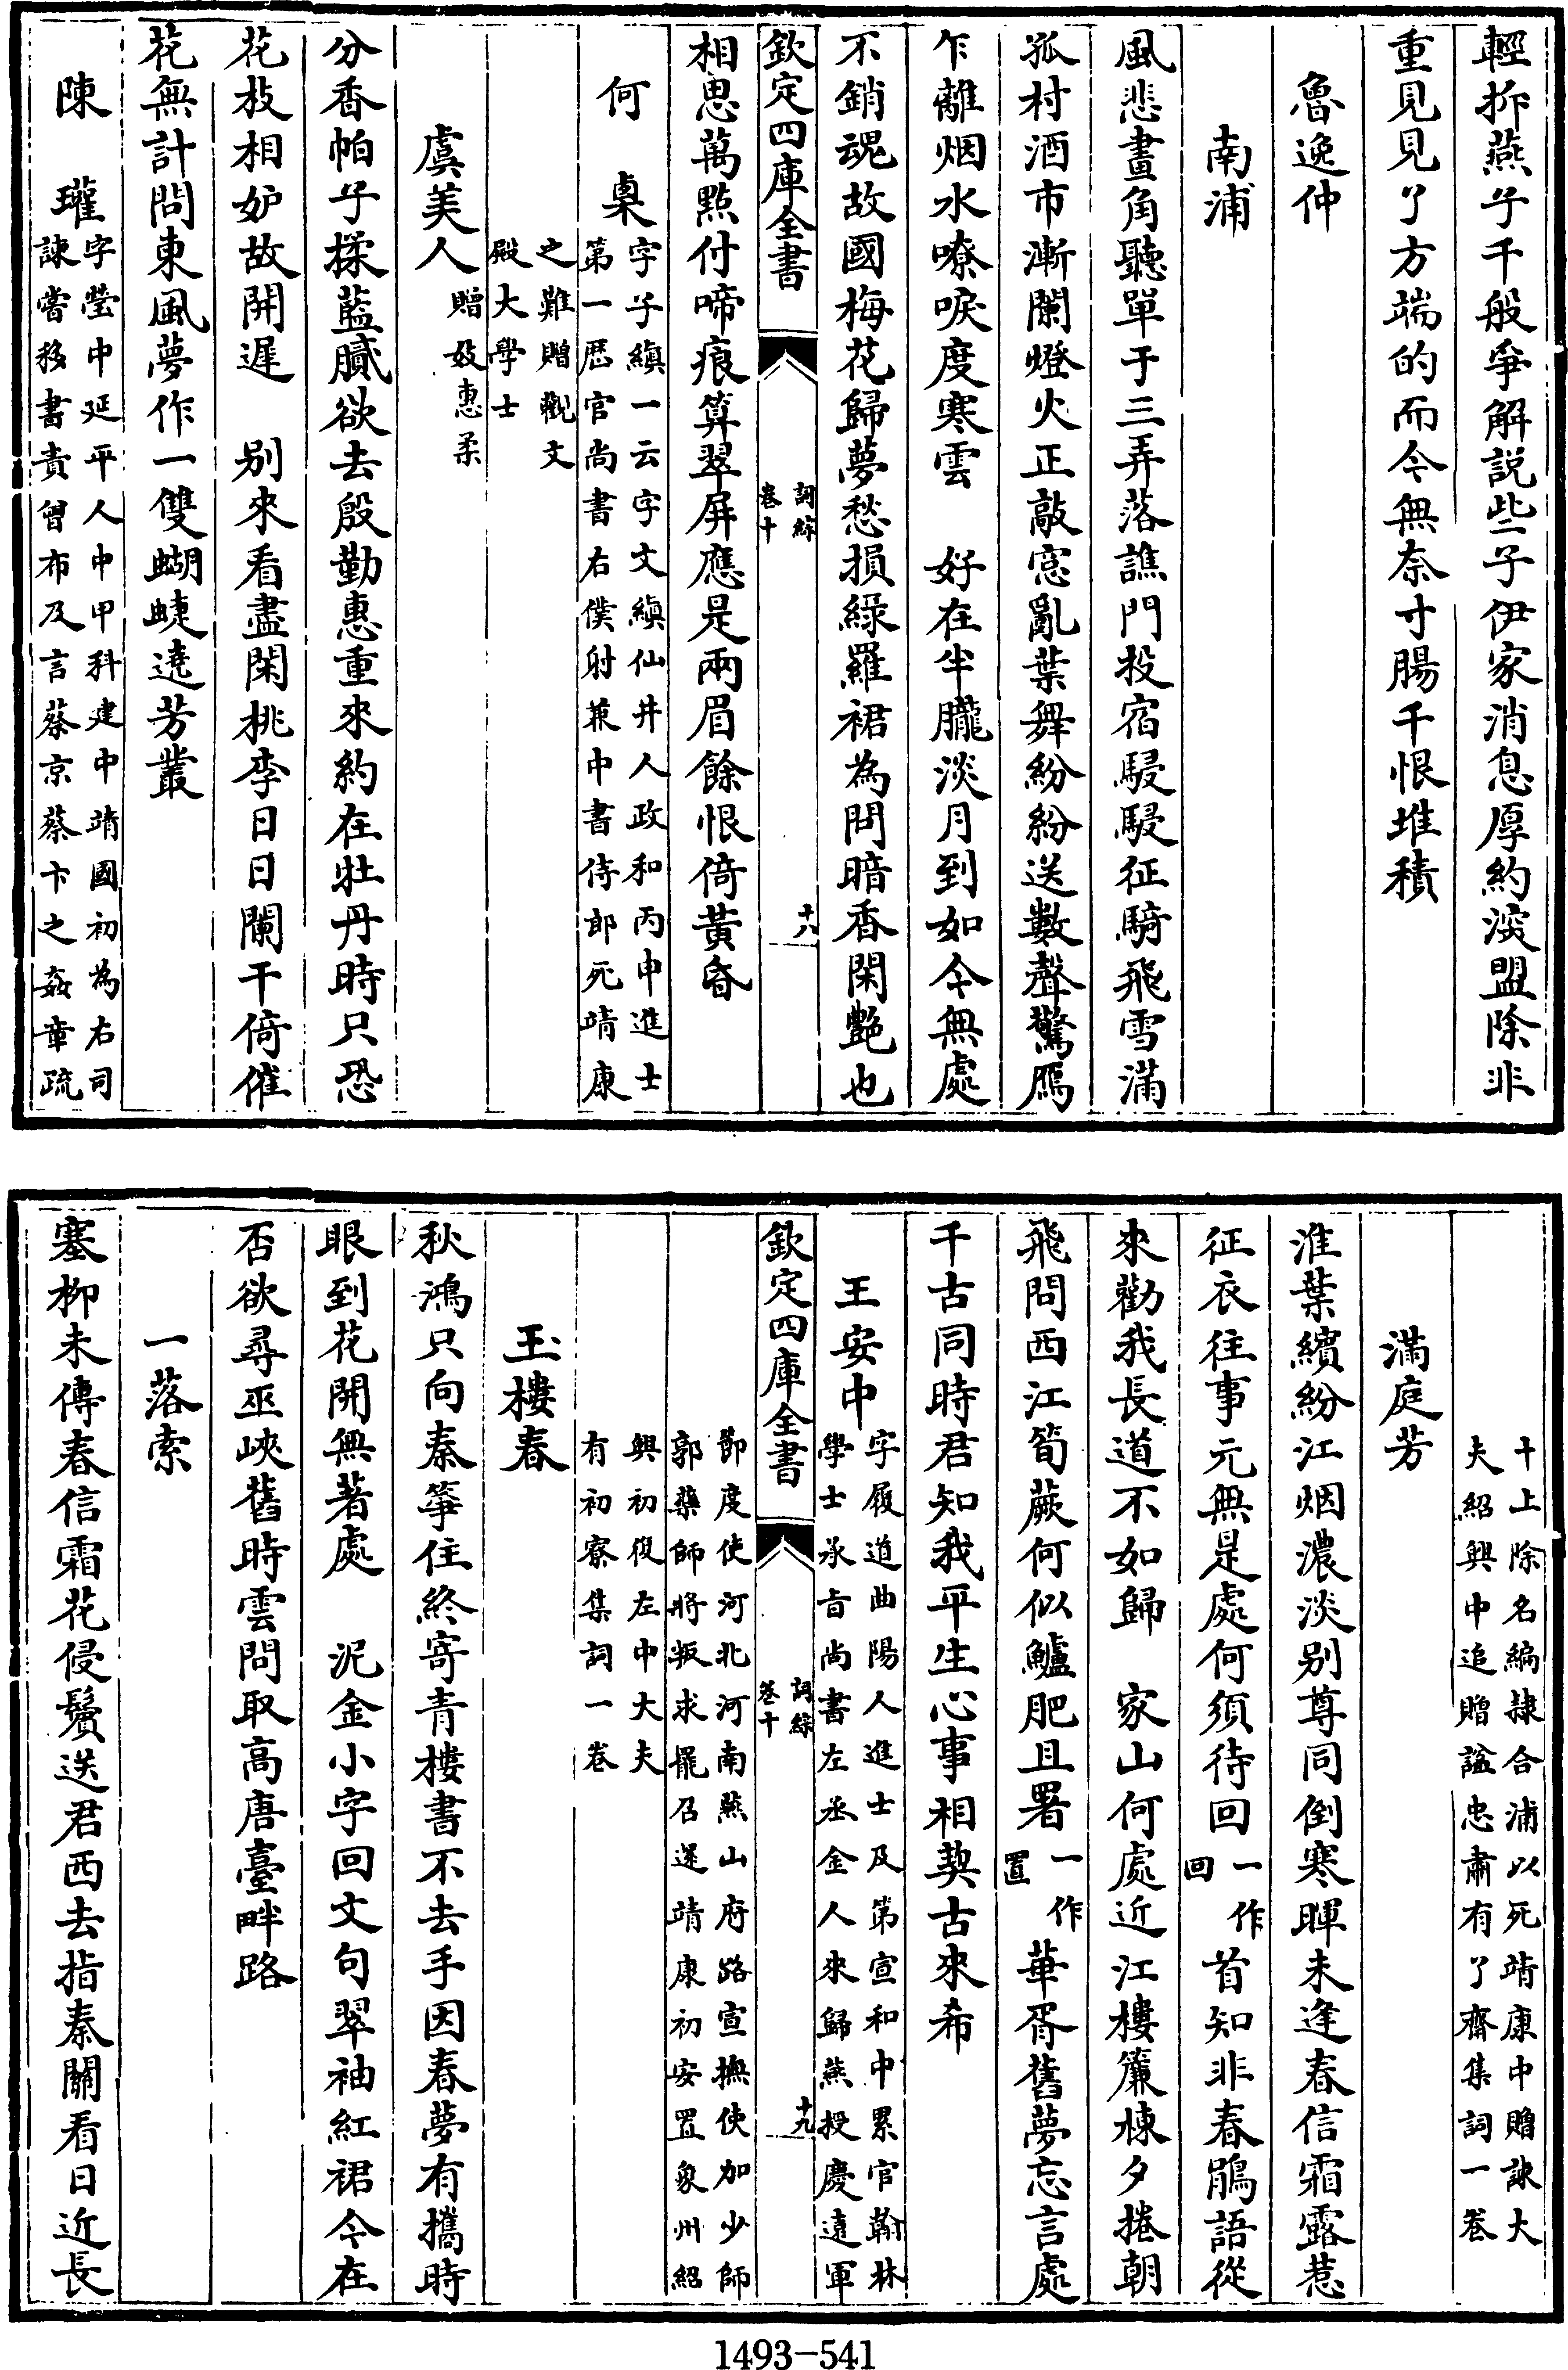 輕抑燕子千般爭解説些子伊家消息厚約深盟除非
重見見了方端的而今無奈寸腸千恨堆積
魯逸仲
南浦
風悲畫角聽單于三弄落譙門投宿駸駸征騎飛雪滿
孤村酒市漸闌燈火正敲窓亂葉舞紛紛送數聲驚鴈
乍離烟水嘹唳度寒雲　好在半朧淡月到如今無處
不銷魂故國梅花歸夢愁損緑羅裙為問暗香閑艷也
欽定四庫全書
詞綜
卷十
十八
相思萬點付啼痕算翠屏應是兩眉餘恨倚黃昏
何　㮚
字子縝一云字文縝仙井人政和丙申進士
第一歴官尚書右僕射兼中書侍郎死靖康
之難贈觀文
殿大學士
虞美人
贈妓惠柔
分香帕子揉藍膩欲去殷勤惠重來約在牡丹時只恐
花枝相妒故開遲　別來看盡閑桃李日日闌干倚催
花無計問東風夢作一雙蝴蜨遶芳叢
陳　瓘
字瑩中延平人中甲科建中靖國初為右司
諫嘗移書責曾布及言蔡京蔡卞之姦章疏
十上除名編隸合浦以死靖康中贈諫大
夫紹興中追贈諡忠肅有了齊集詞一卷
滿庭芳
淮葉繽紛江烟濃淡別尊同倒寒暉未逢春信霜露惹
征衣往事元無是處何須待回一作回首知非春鵑語從
來勸我長道不如歸　家山何處近江樓簾棟夕捲朝
飛問西江筍蕨何似鱸肥且署一作置華胥舊夢忘言處
千古同時君知我平生心事相契古來希
王安中
字履道曲陽人進士及第宣和中累官翰林
學士承旨尚書左丞金人來歸燕授慶遠軍
欽定四庫全書
詞綜
卷十
十九
節度使河北河南燕山府路宣撫使加少師
郭藥師將叛求罷召還靖康初安置象州紹
興初復左中大夫
有初寮集詞一卷
玉樓春
秋鴻只向秦箏住終寄青樓書不去手因春夢有攜時
眼到花開無著處　泥金小字回文句翠袖紅裙今在
否欲尋巫峽舊時雲問取高唐臺畔路
一落索
塞柳未傳春信霜花侵鬢送君西去指秦關看日近長
1493-541